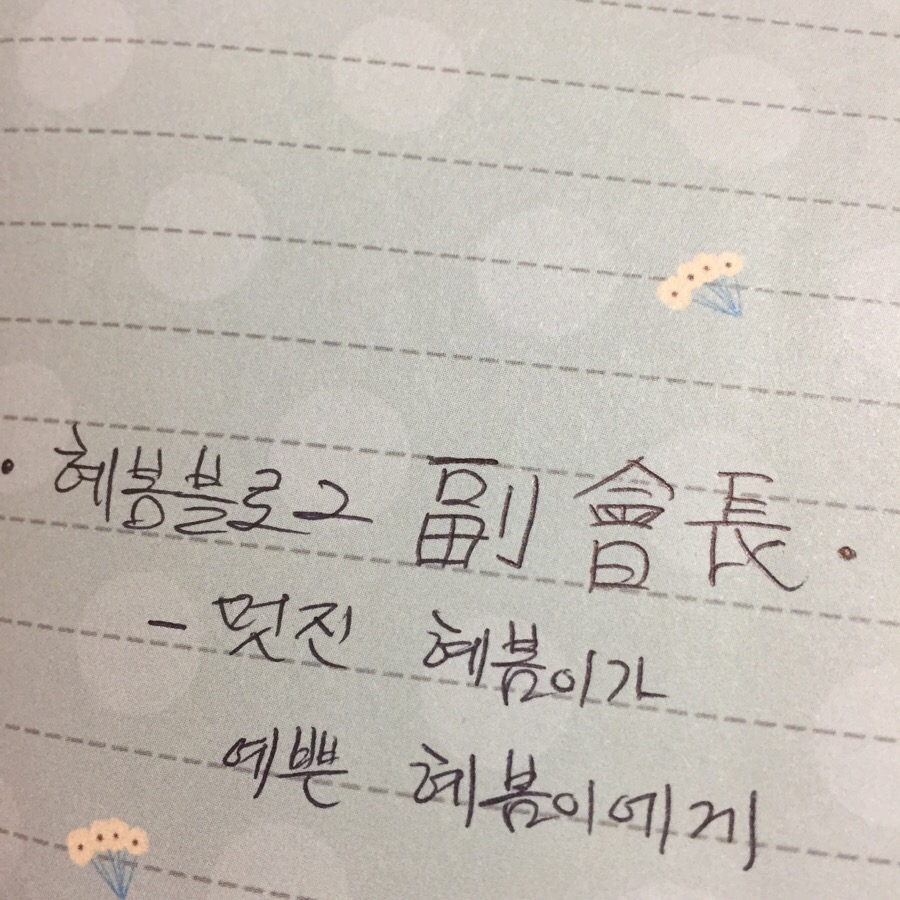 · 혜봄블로그 副會長.
- 멋진 혜봄이가
예쁜 혜봄이에게